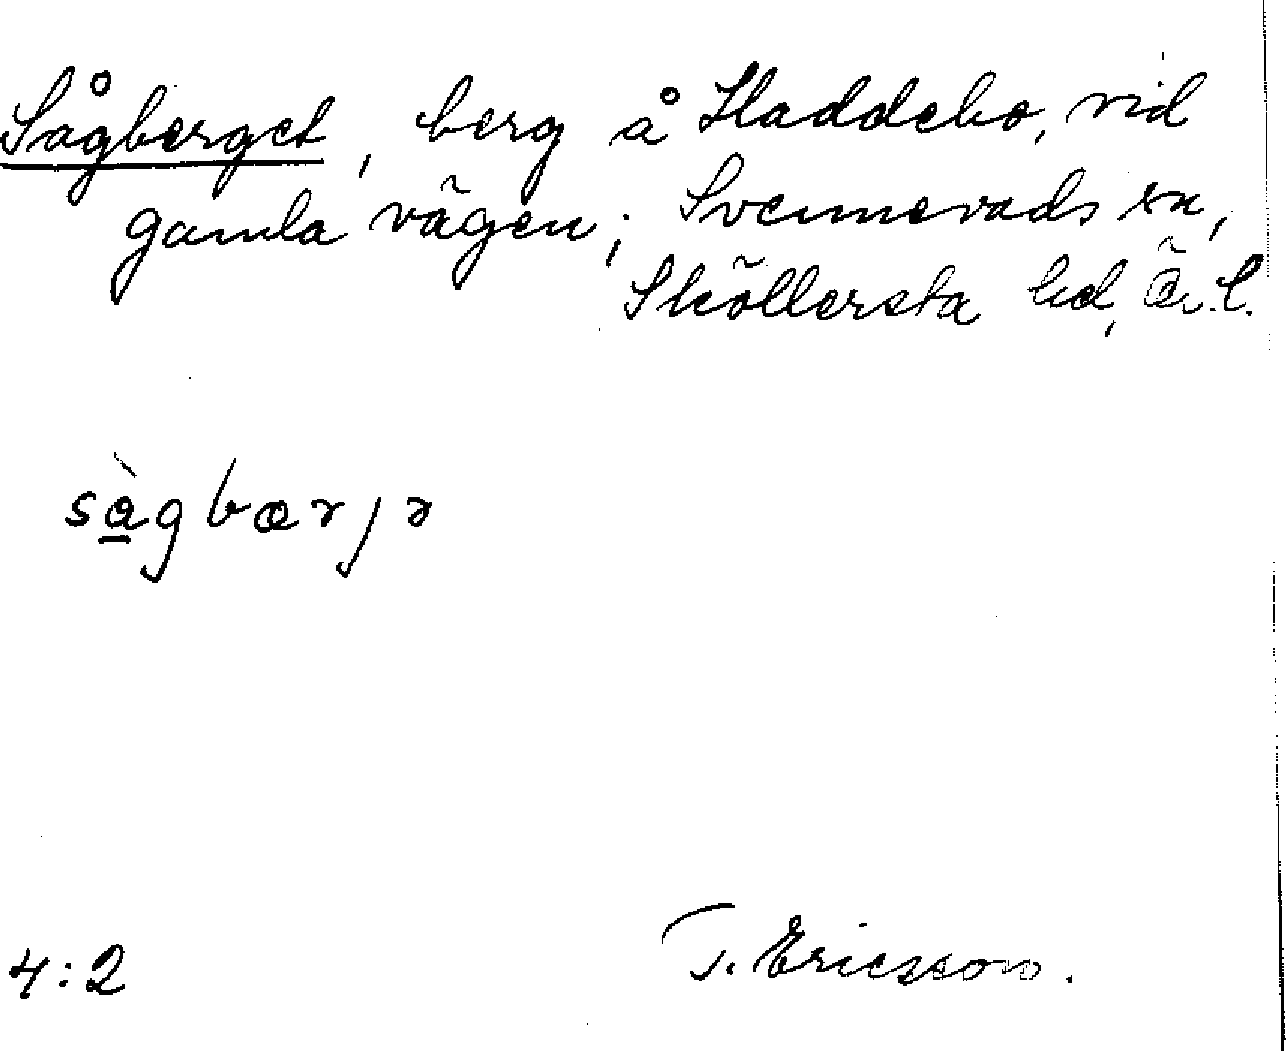 Sågberget, berg å Haddebo, vid
gamla vägen; Svennevads sn,
Sköllersta hd, Ör. l.
sàgbærjə
4:2
T. Ericsson.